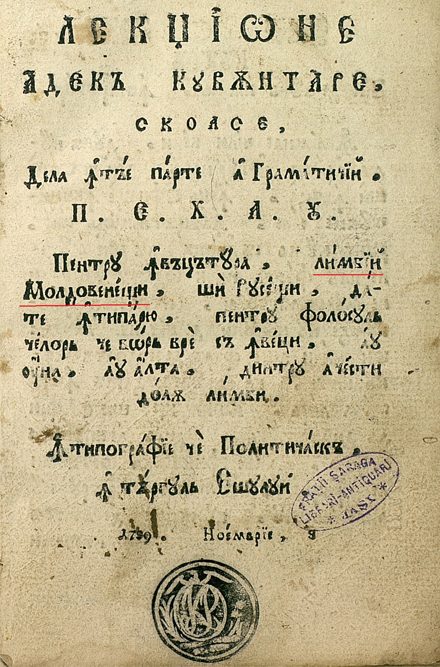 ЛЕКЦЇѠНЕ
АДЕКЪ КУВѪНТАРЕ,
СКОАСЕ,
Дела ꙟтѣ́е па́рте а҆ Грама́тичїй.
П. Є. Х. А. Ѹ.
Пентру ꙟвъцъту́ра, ли́мбїй
Молдовенѣ́щи, ши Русѣ́щи, да́-
те ꙟтипа́рю, пентру фоло́сꙋль
че́лорь че во́рь врѐ съ ꙟвѣ́ци. а҆у
оу҆на, а҆у а҆лта, динтру а҆чѣсти
до́аѫ ли́мби.
ꙟтипогра́фїе чѐ Политичѣ́скъ,
ꙟ тѫ́ргꙋль Єшꙋлуй
1789 Ное́мврїе,
FRAȚII ȘARAGA
LIBRARI-ANTIQUARI
* IAȘI *